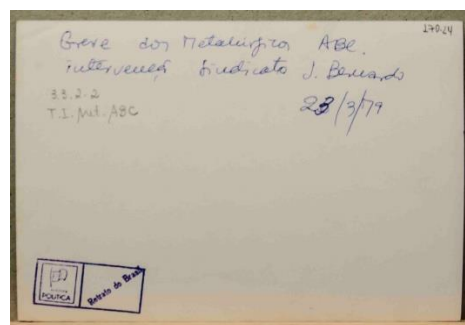 270-24
Greve dos Metalúrgicos ABC.
intervenção Sindicato S. Bernardo
23/3/79
3.3.2.2
T.I. Met. ABC
POLITICA
Retrato do Brasil